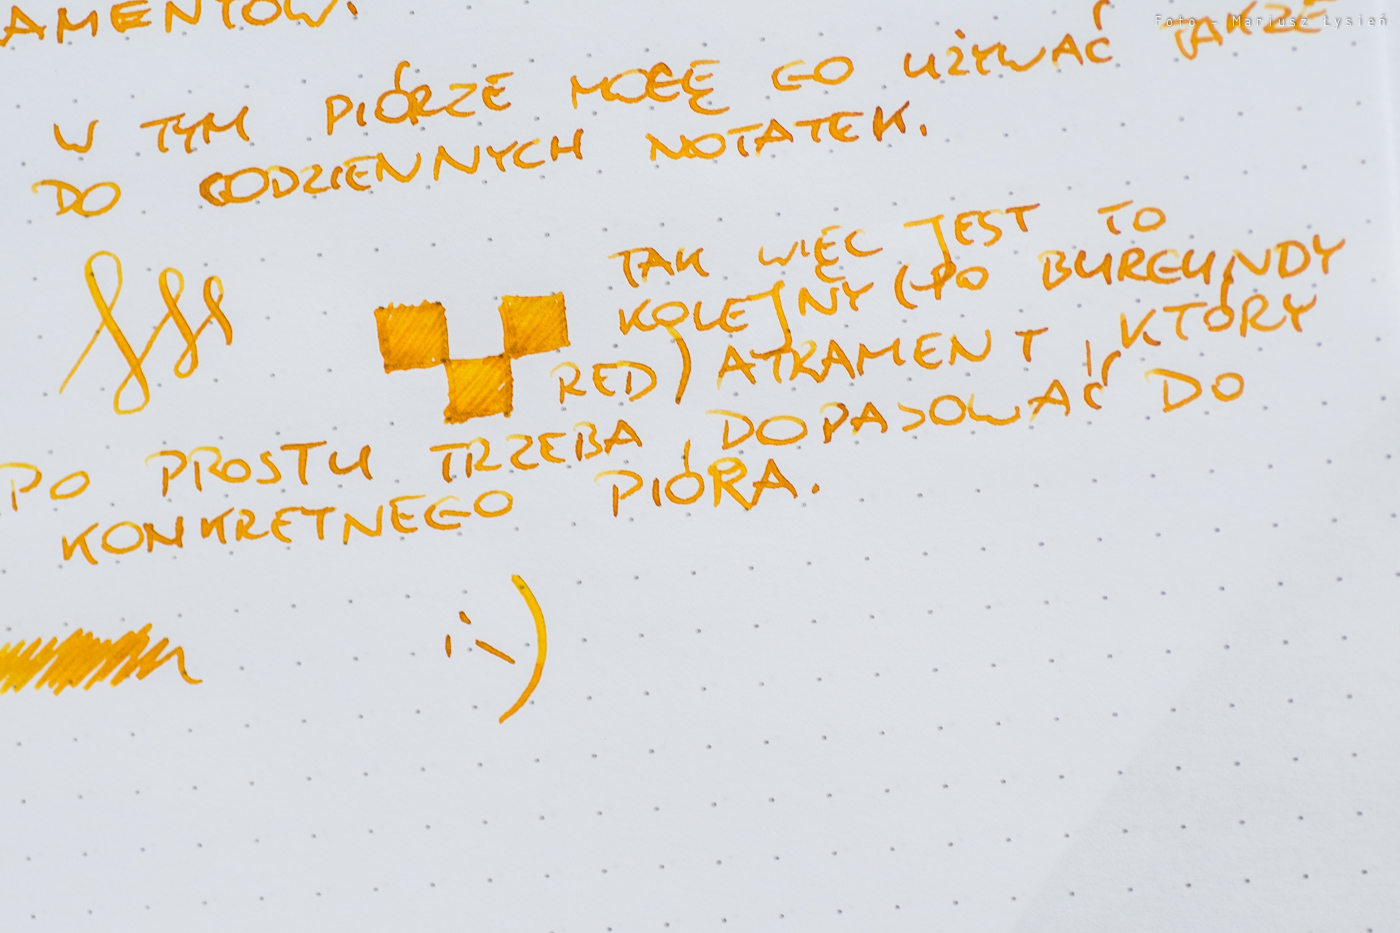 Foto - Mariusz Łysień
AMENTÓW.
W TYM PIÓRZE MOGĘ GO UŻYWAĆ TAKŻE
DO CODZIENNYCH NOTATEK.
TAK WIĘC JEST TO
KOLEJNY (PO BURGUNDY
RED) ATRAMENT, KTÓRY
PO PROSTU TRZEBA DOPASOWAĆ DO
KONKRETNEGO PIÓRA.
:-)